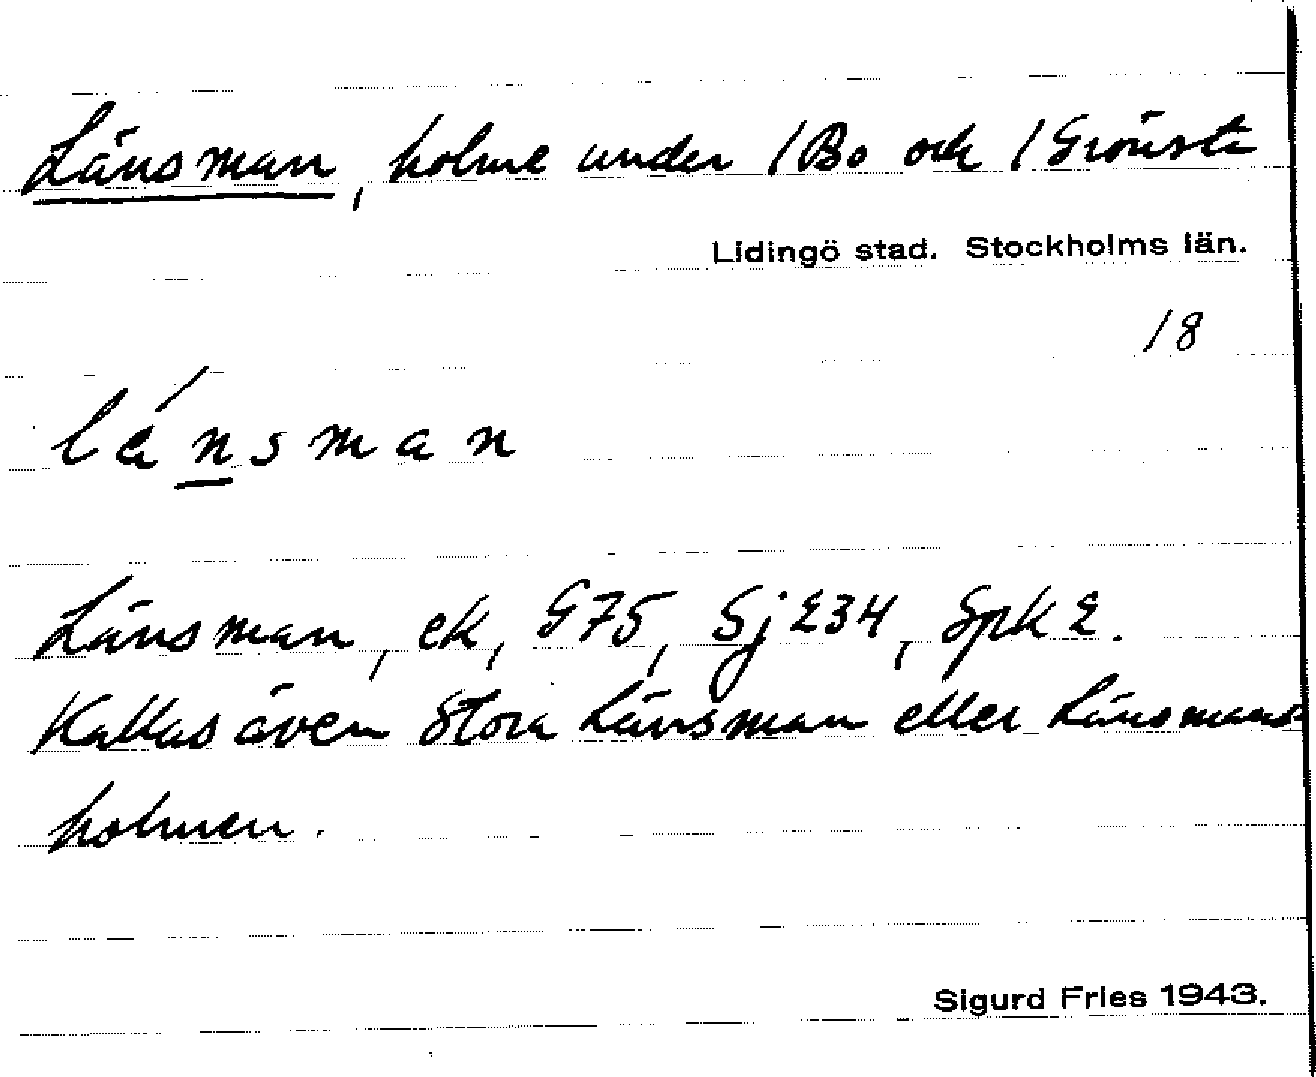 Länsman, holme under 1 Bo och 1 Grönsta
Lidingö stad. Stockholms län.
18
länsman
Länsman, ek, G75, Sj 234, Spk 2.
Kallas även Stora Länsman eller Länsmans-
holmen.
Sigurd Fries 1943.